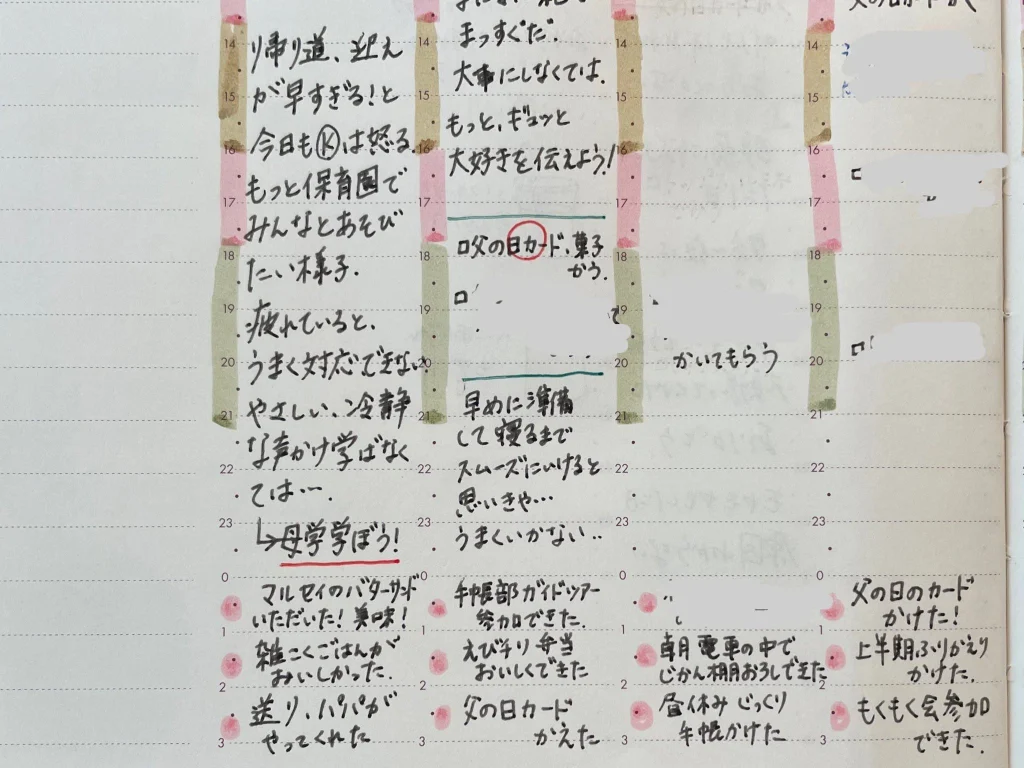 り帰り道、迎え
が早すぎる!と
今日もⓀは怒る。
もっと保育園で
みんなとあそび
たい様子.
疲れていると、
うまく対応できない
やさしい、冷静
な声かけ学ばなく
ては….
↳母学学ぼう!
マルセイのバターサンド
いただいた!美味!
雑こくごはんが
おいしかった.
送り、パパが
やってくれた
まっすぐだ
大事にしなくては.
もっと、ギュッと
大好きを伝えよう!
□父の日カード、菓子
かう.
早めに準備
して寝るまで
スムーズにいけると
思いきや…
うまくいかない‥
手帳部ガイドツアー
参加できた.
えびチリ弁当
おいしくできた
父の日カード
かえた
かいてもらう
朝月電車の中で
じかん棚おろしできた
昼休みじっくり
手帳かけた
父の日のカード
かけた!
上半期ふりかえり
かけた.
もくもく会参加
できた.
14
15
16
17
18
19
20
21
22
23
0
1
2
3
14
15
16
17
18
19
20
21
22
23
0
1
2
3
14
15
16
17
18
19
20
21
22
23
0
1
2
3
14
15
16
17
18
19
20
21
22
23
0
1
2
3